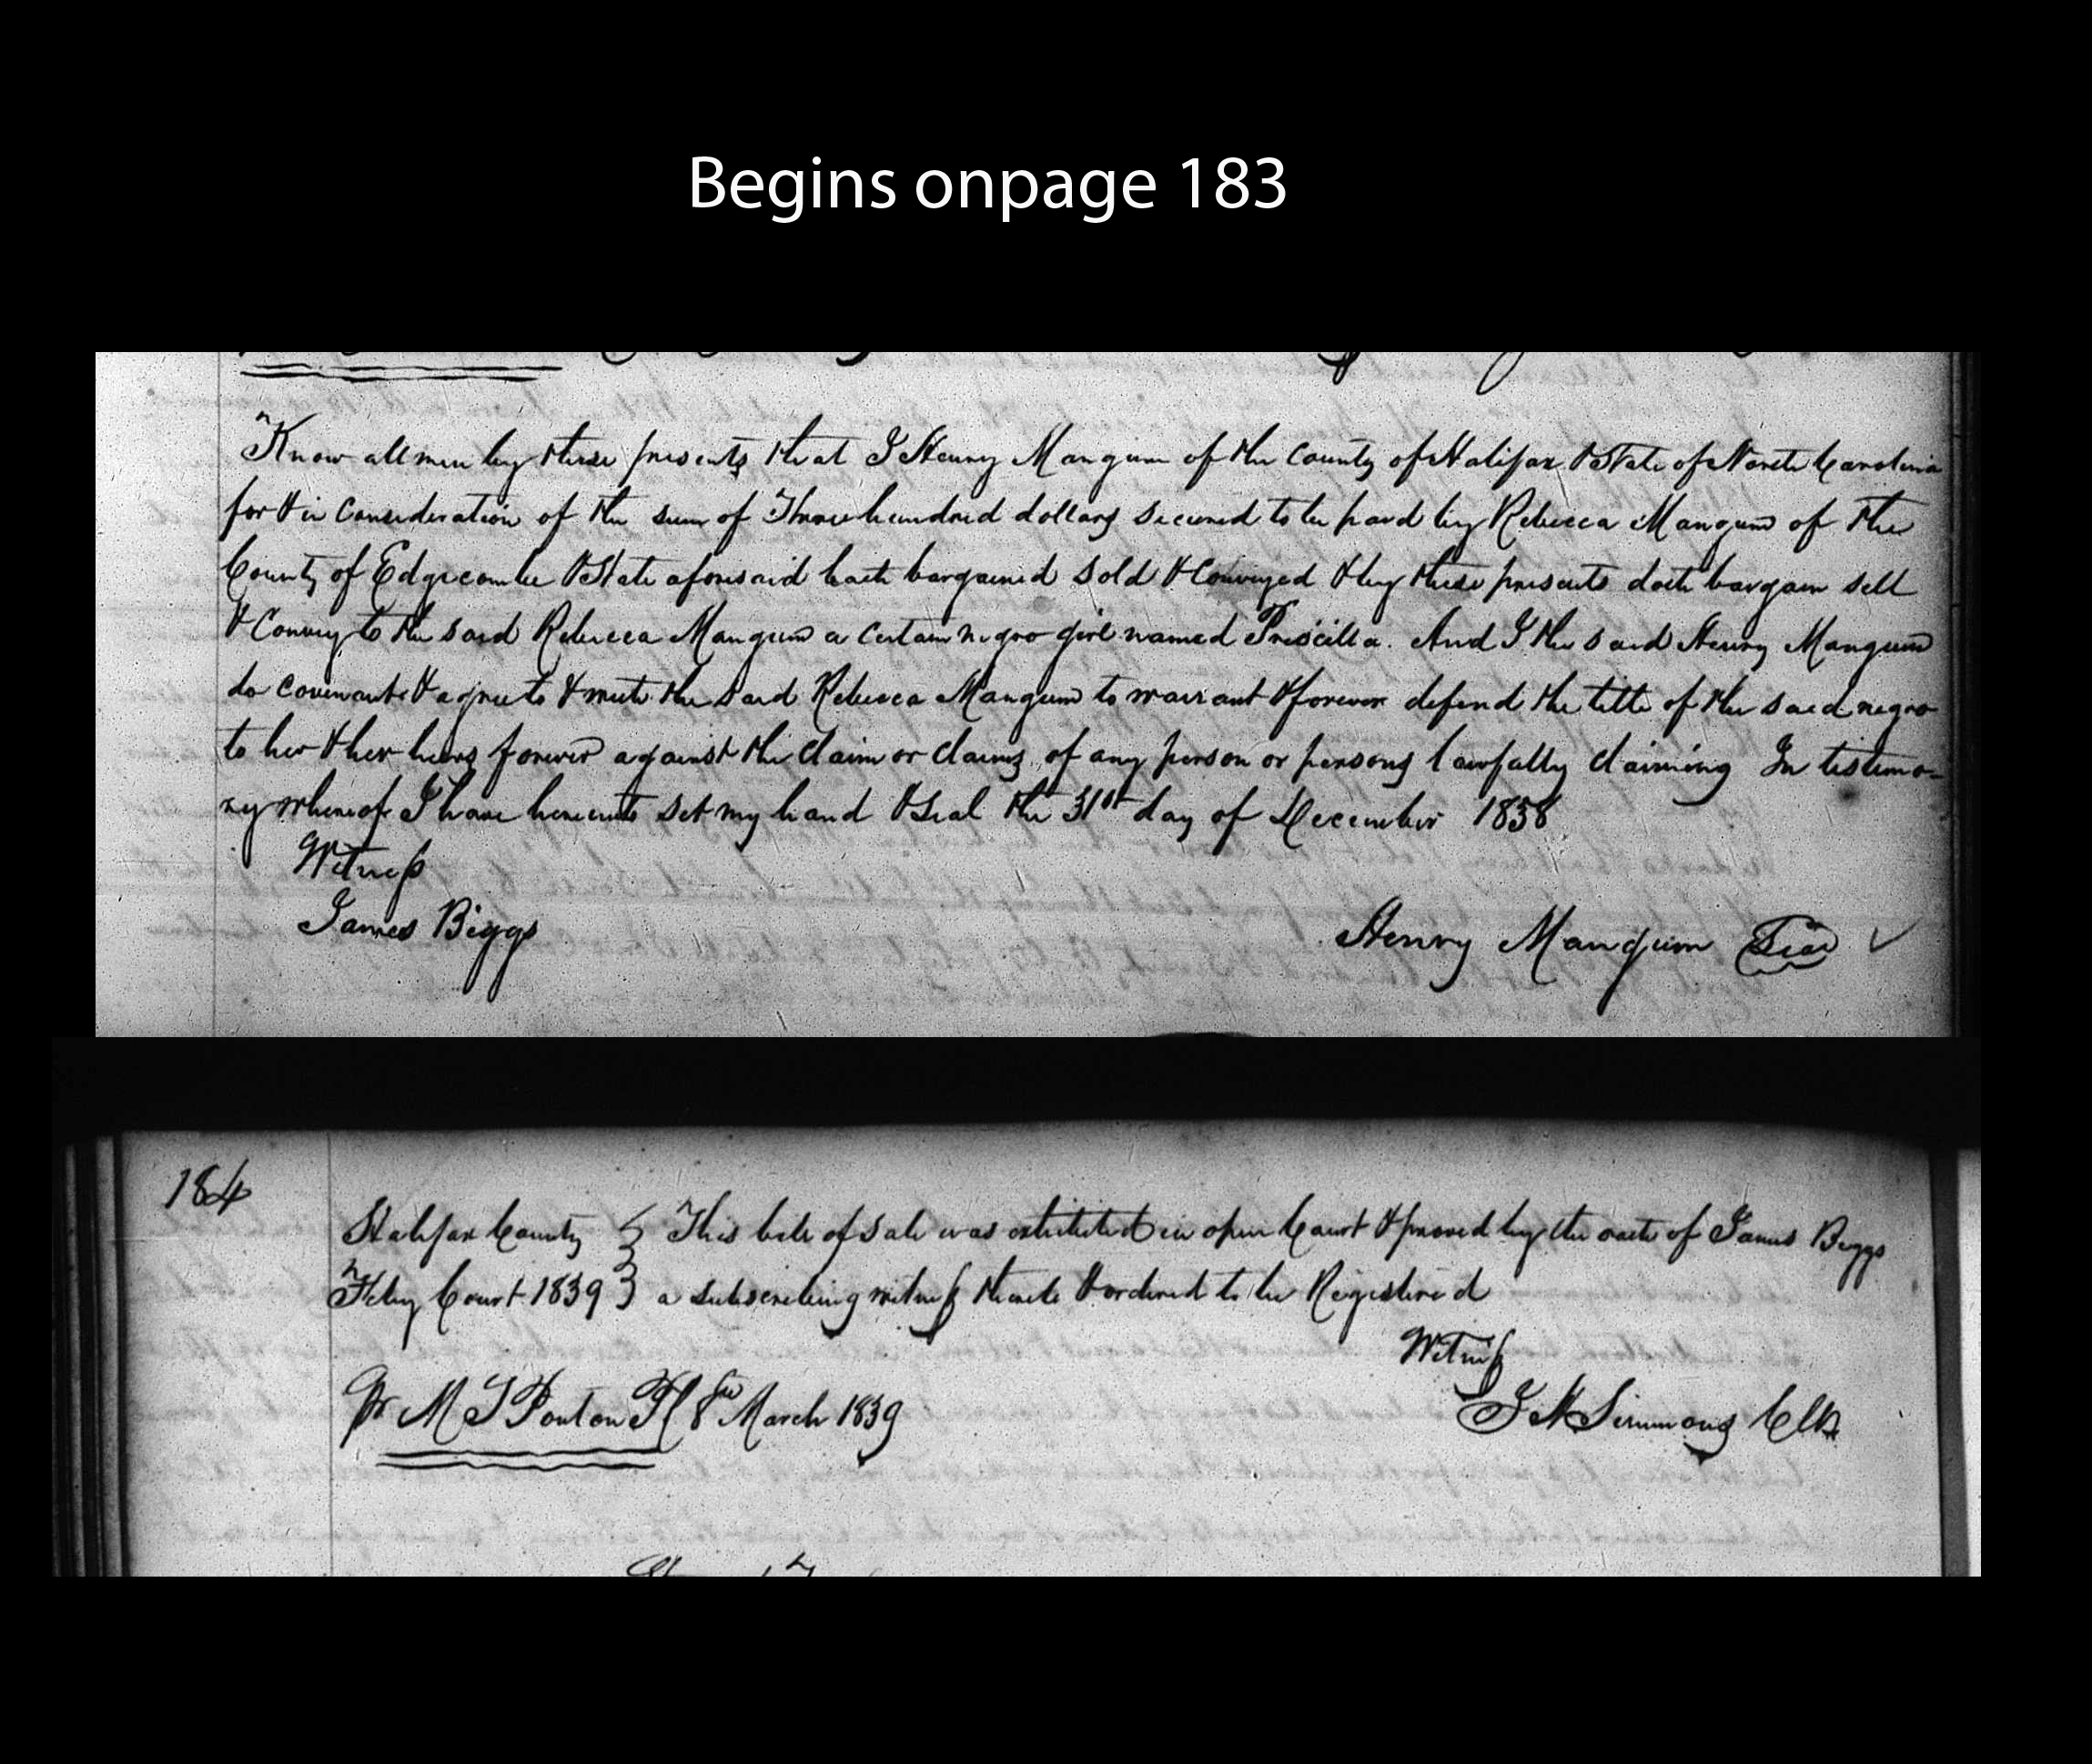 Begins onpage 183
Know all men by these presents that I Henry Mangum of the County of Halifax & State of North Carolina
for & in Consideration of the sum of Three hundred dollars secured to be paid by Rebecca Mangum of the
County of Edgecombe & State aforesaid hath bargained sold & Conveyed & by these presents doth bargain sell
& Convey to the said Rebecca Mangum a certain negro girl named Priscilla. And I the said Henry Mangum
do covenant & agree to & with the said Rebecca Mangum to warrant & forever defend the title of the said negro
to her & her heirs forever against the claim or claims of any person or persons lawfully claiming In testimo-
ny whereof I have hereunto set my hand & seal the 31st day of December 1838
Witness
James Biggs
Henry Mangum Seal
184
Halifax County } This bill of sale was exhibited in open Court & proved by the oath of James Biggs
Feby Court 1839 } a subscribing witness thereto & ordered to be Registered
Witness
Pr M T Ponton PR 8th March 1839
J H Simmons Clk